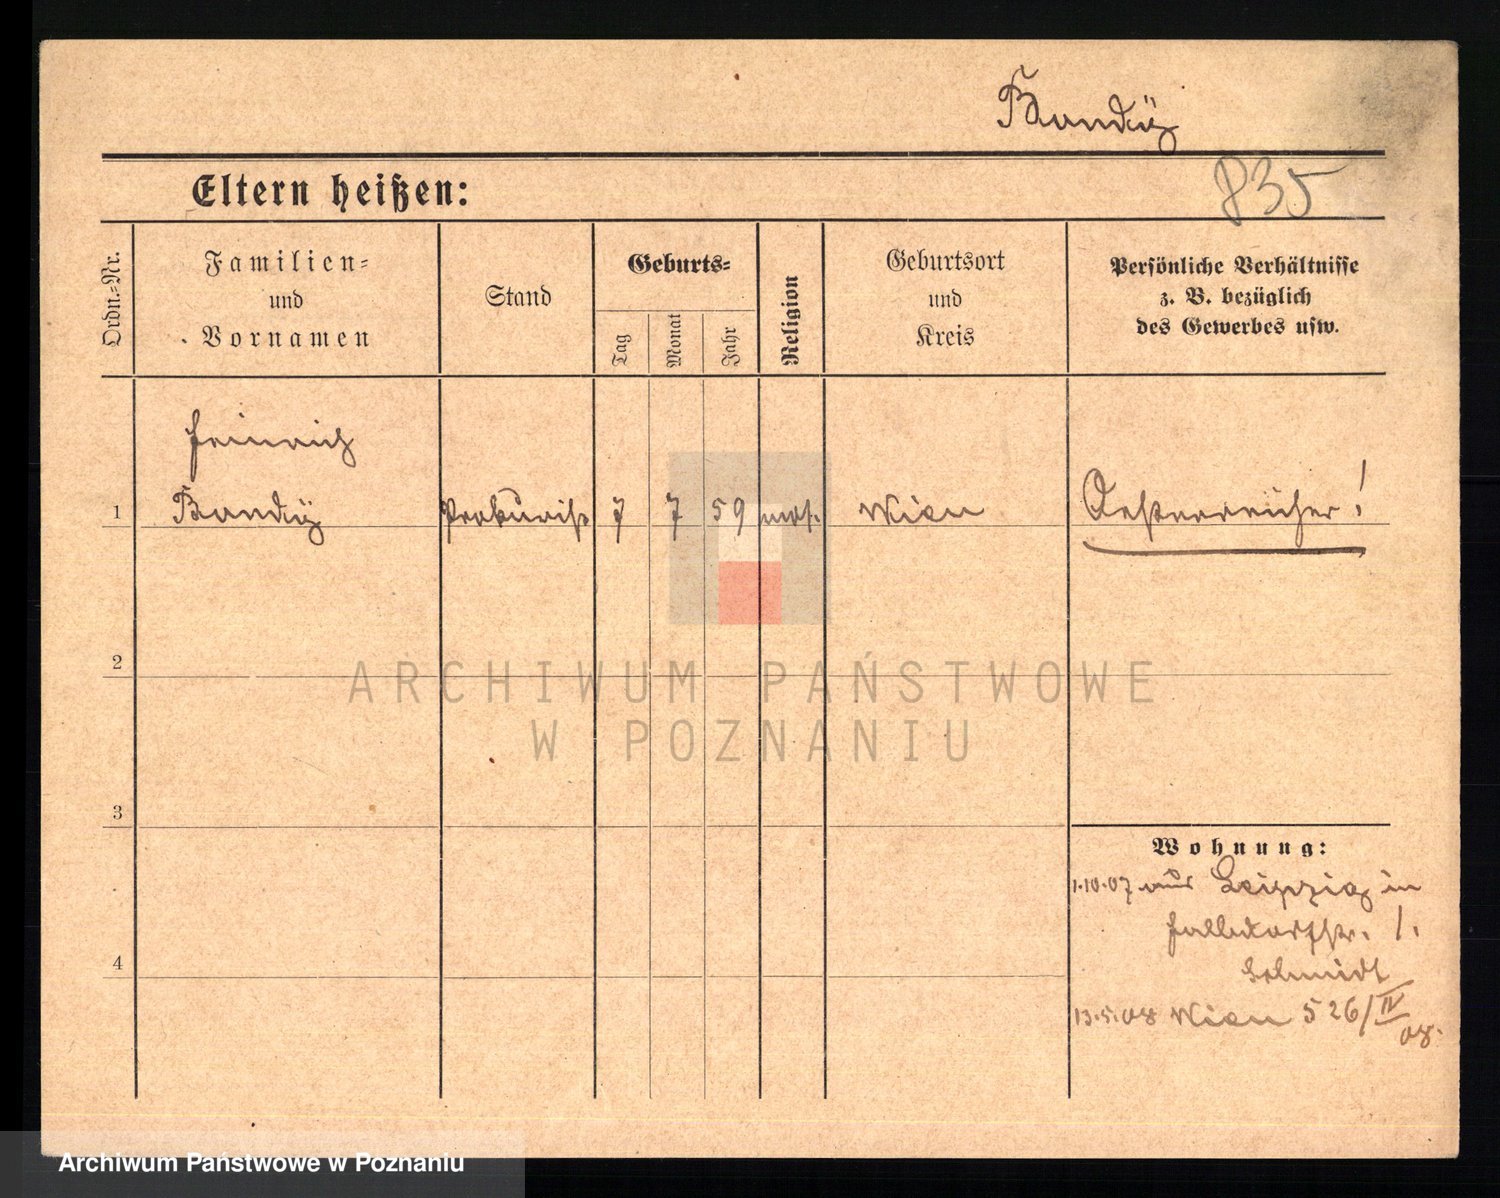 Bandüz
835
Eltern heißen:
Ordn.-Nr.
Familien-
und
Vornamen
Stand
Geburts-
Tag
Monat
Jahr
Religion
Geburtsort
und
Kreis
Persönliche Verhältnisse
z. B. bezüglich
des Gewerbes usw.
Heinrich
1 Bandüz Prokurist 7 7 59 mos. Wien Oesterreicher!
2
ARCHIWUM PAŃSTWOWE
W POZNANIU
3
Wohnung:
1.10.07 aus Leipzig in
1.
4
Schmidt
13.5.08 Wien 526/IV
08.
Archiwum Państwowe w Poznaniu